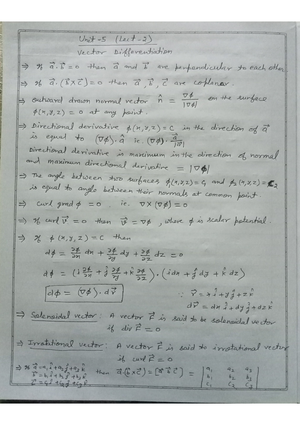 Unit-5 (Lect-2)
Vector Differentiation
⇒ If a⃗.b⃗=0 then a⃗ and b⃗ are perpendicular to each other.
⇒ If a⃗.(b⃗×c⃗)=0 then a⃗, b⃗, c⃗ are coplanar.
⇒ Outward drawn normal vector n̂ = ∇φ/|∇φ| on the surface
φ(x,y,z) = 0 at any point.
⇒ Directional derivative φ(x,y,z)=C in the direction of a⃗
is equal to (∇φ).â ie (∇φ).a⃗/|a⃗|
Directional derivative is maximum in the direction of normal
and maximum directional derivative = |∇φ|
⇒ The angle between two surfaces φ₁(x,y,z)=C₁ and φ₂(x,y,z)=C₂
is equal to angle between their normals at common point.
⇒ Curl grad φ = 0 ie. ∇×(∇φ) = 0
⇒ If curl v⃗ = 0 then v⃗ = ∇φ, where φ is scalar potential.
⇒ If φ(x,y,z) = C then
dφ = ∂φ/∂x dx + ∂φ/∂y dy + ∂φ/∂z dz = 0
dφ = (î ∂φ/∂x + ĵ ∂φ/∂y + k̂ ∂φ/∂z).(îdx + ĵdy + k̂dz)
dφ = (∇φ).dr⃗
∵ r⃗ = xî+yĵ+zk̂
dr⃗ = dxî+dyĵ+dzk̂
⇒ Solenoidal vector: A vector F⃗ is said to be solenoidal vector
if div F⃗ = 0
⇒ Irrotational vector: A vector F⃗ is said to irrotational vector
if curl F⃗ = 0
⇒ If a⃗ = a₁î+a₂ĵ+a₃k̂ then a⃗.(b⃗×c⃗) = [a⃗ b⃗ c⃗] = | a₁ a₂ a₃ |
b⃗ = b₁î+b₂ĵ+b₃k̂ | b₁ b₂ b₃ |
c⃗ = c₁î+c₂ĵ+c₃k̂ | c₁ c₂ c₃ |